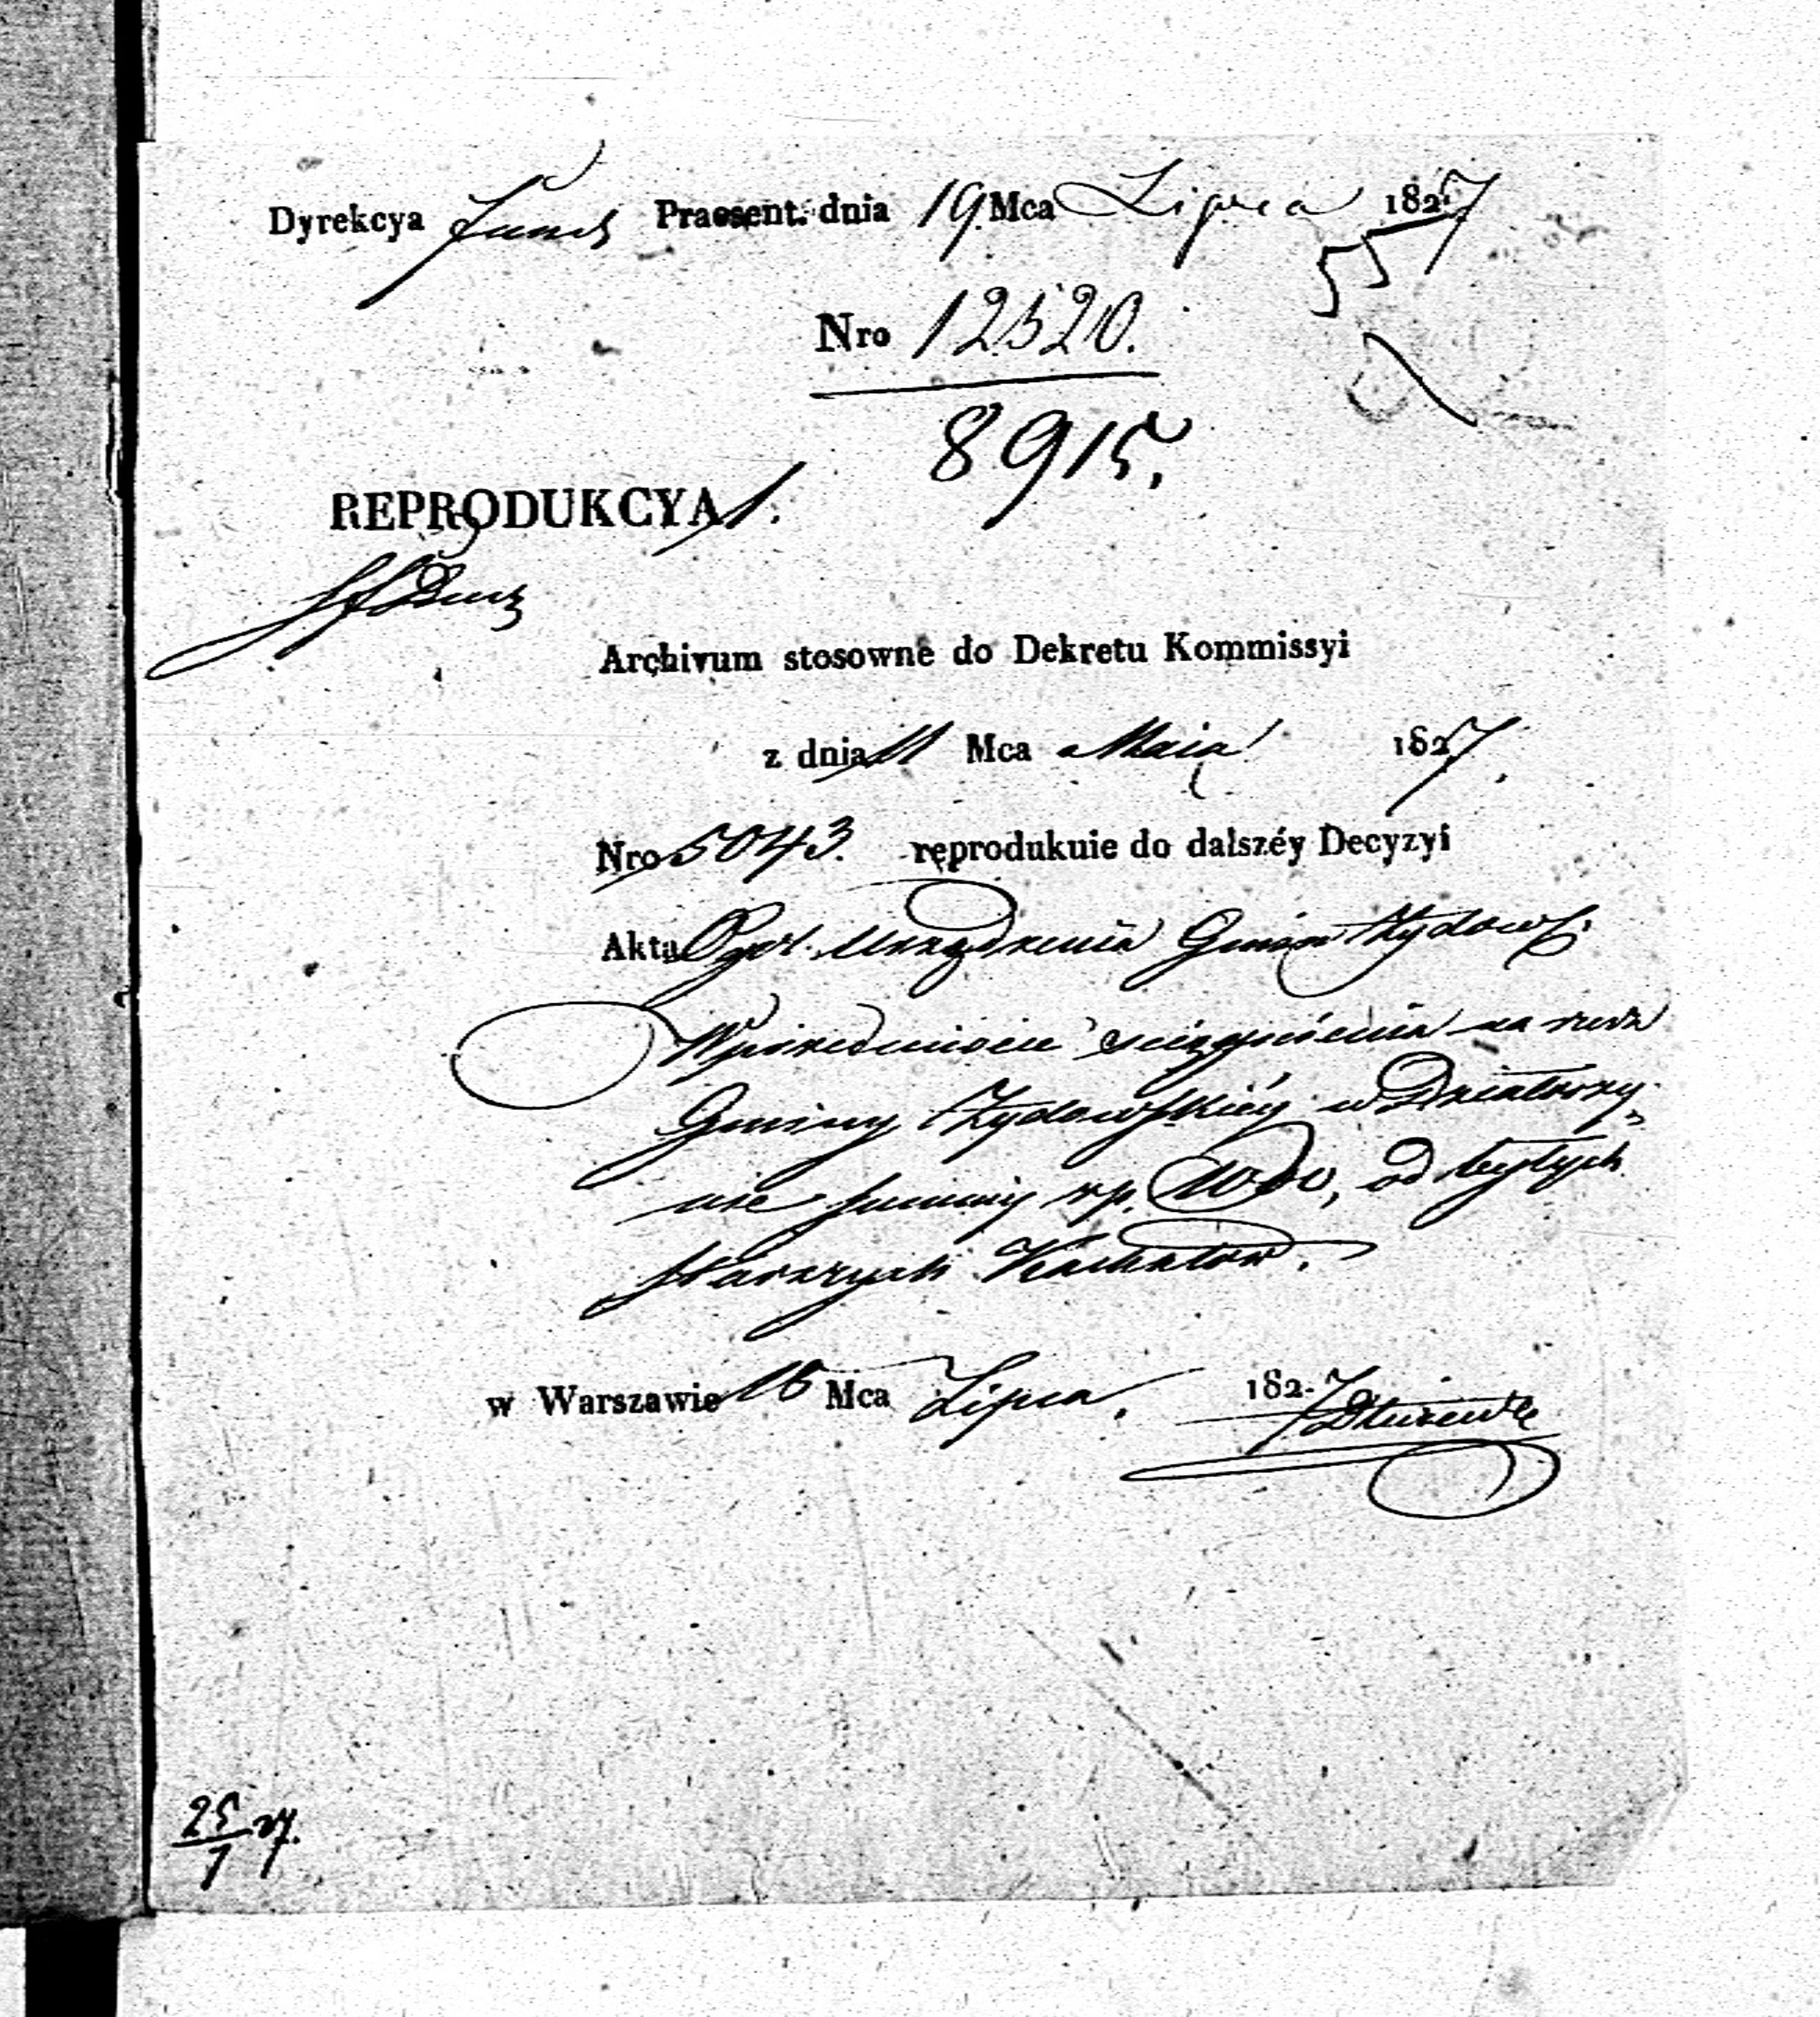 Dyrekcya Fund Praesent. dnia 19 Mca Lipca 1827
55
Nro 12520.
8915.
REPRODUKCYA 1.
Archivum stosowne do Dekretu Kommissyi
z dnia 11 Mca Maia 1827.
Nro 5043. reprodukuie do dalszéy Decyzyi
Akta Ogól. Urządzenia Gmin Żydows.
W przedmiocie ściągnienia na rzecz
Gminy Żydowskiéy w Działoszy-
nie summy zp. od byłych
starszych Kahałów.
w Warszawie 16 Mca Lipca, 1827
25/7 27.